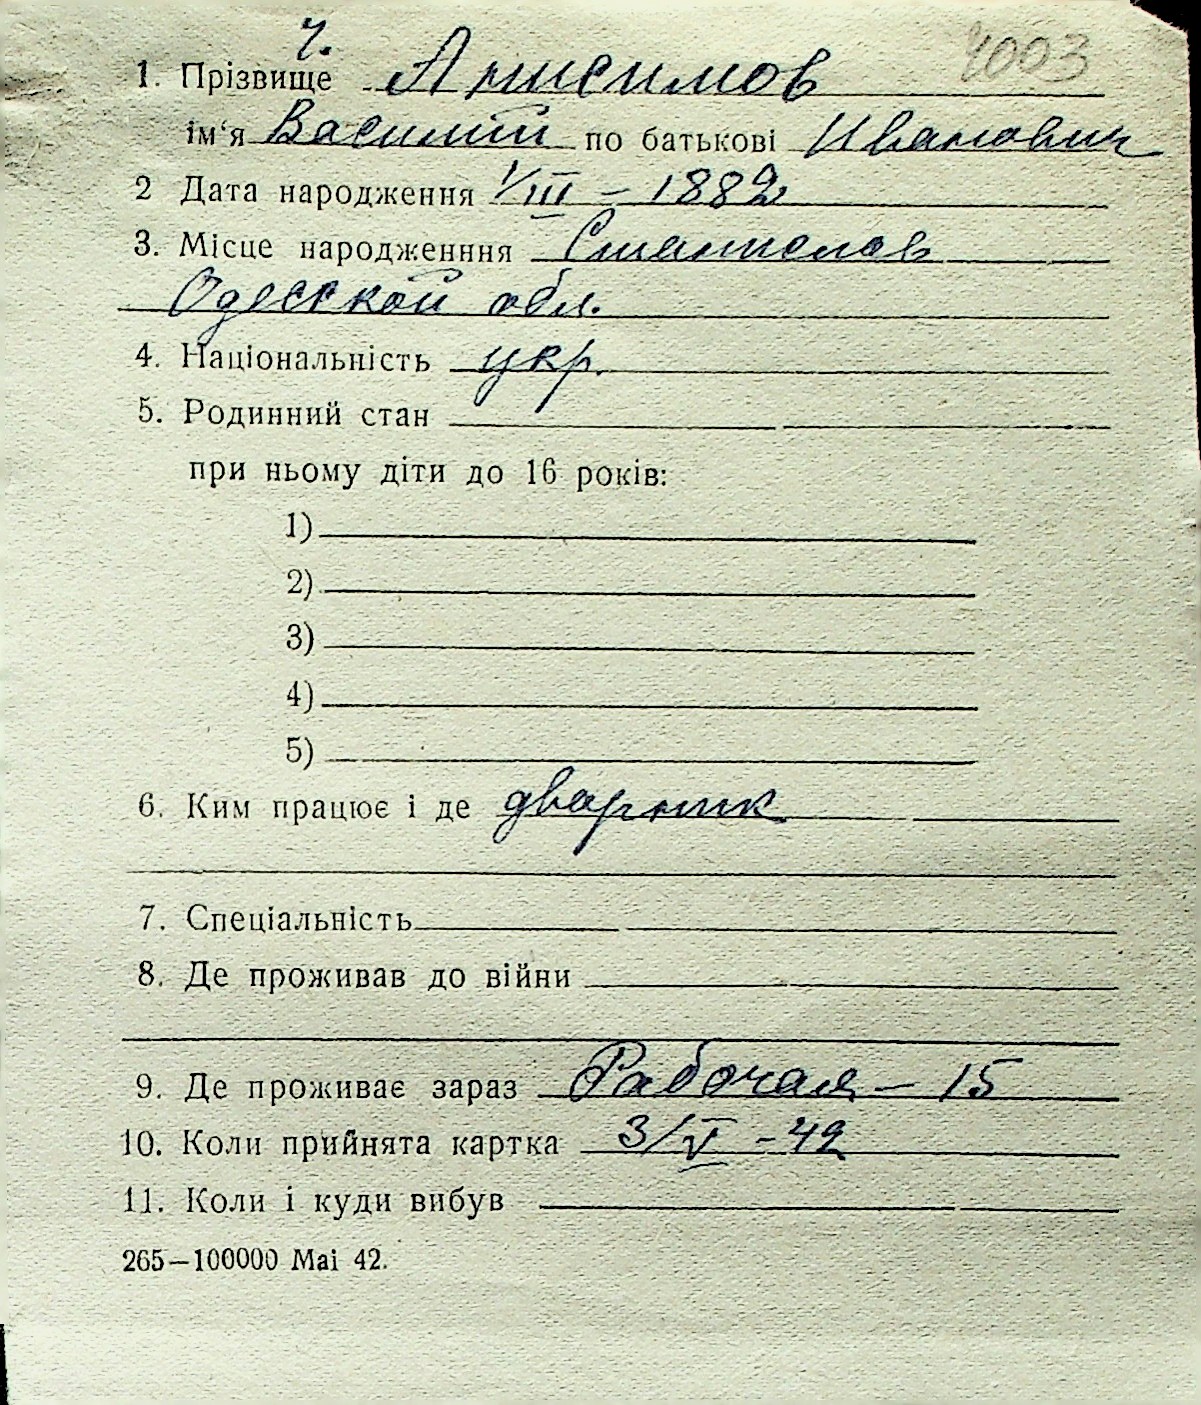 ч. 4003
1. Прізвище Анисимов
ім'я Василий по батькові Иванович
2 Дата народження 1/III – 1882
3. Місце народженння Станислав
Одесской обл.
4. Національність укр.
5. Родинний стан
при ньому діти до 16 років:
1)
2)
3)
4)
5)
6. Ким працює і де дварник
7. Спеціальність
8. Де проживав до війни
9. Де проживає зараз Рабочая – 15
10. Коли прийнята картка 3/V - 42
11. Коли і куди вибув
265—100000 Mai 42.